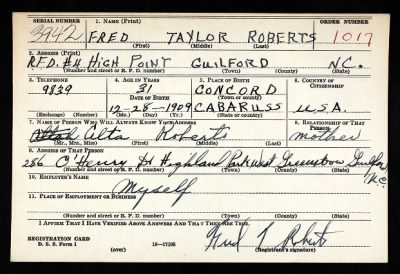 SERIAL NUMBER 1. NAME (Print) ORDER NUMBER
3942 FRED TAYLOR ROBERTS 1017
(First) (Middle) (Last)
2. ADDRESS (Print)
R.F.D. #4 HIGH POINT GUILFORD N.C.
(Number and street or R. F. D. number) (Town) (County) (State)
3. TELEPHONE 4. AGE IN YEARS 5. PLACE OF BIRTH 6. COUNTRY OF CITIZENSHIP
9839 31 CONCORD
DATE OF BIRTH (Town or county)
12-28-1909 CABARUSS U.S.A.
(Mo.) (Day) (Yr.) (State or country)
7. NAME OF PERSON WHO WILL ALWAYS KNOW YOUR ADDRESS 8. RELATIONSHIP OF THAT PERSON
Alta Roberts mother
(Mr., Mrs., Miss) (First) (Middle) (Last)
9. ADDRESS OF THAT PERSON
286 O'Henry Highland Park West Greensboro Guilford N.C.
(Number and street or R. F. D. number) (Town) (County) (State)
10. EMPLOYER'S NAME
Myself
11. PLACE OF EMPLOYMENT OR BUSINESS
(Number and street or R. F. D. number) (Town) (County) (State)
I AFFIRM THAT I HAVE VERIFIED ABOVE ANSWERS AND THAT THEY ARE TRUE.
REGISTRATION CARD
D. S. S. Form 1 (over) 16—17105 Fred T Roberts
(Registrant's signature)